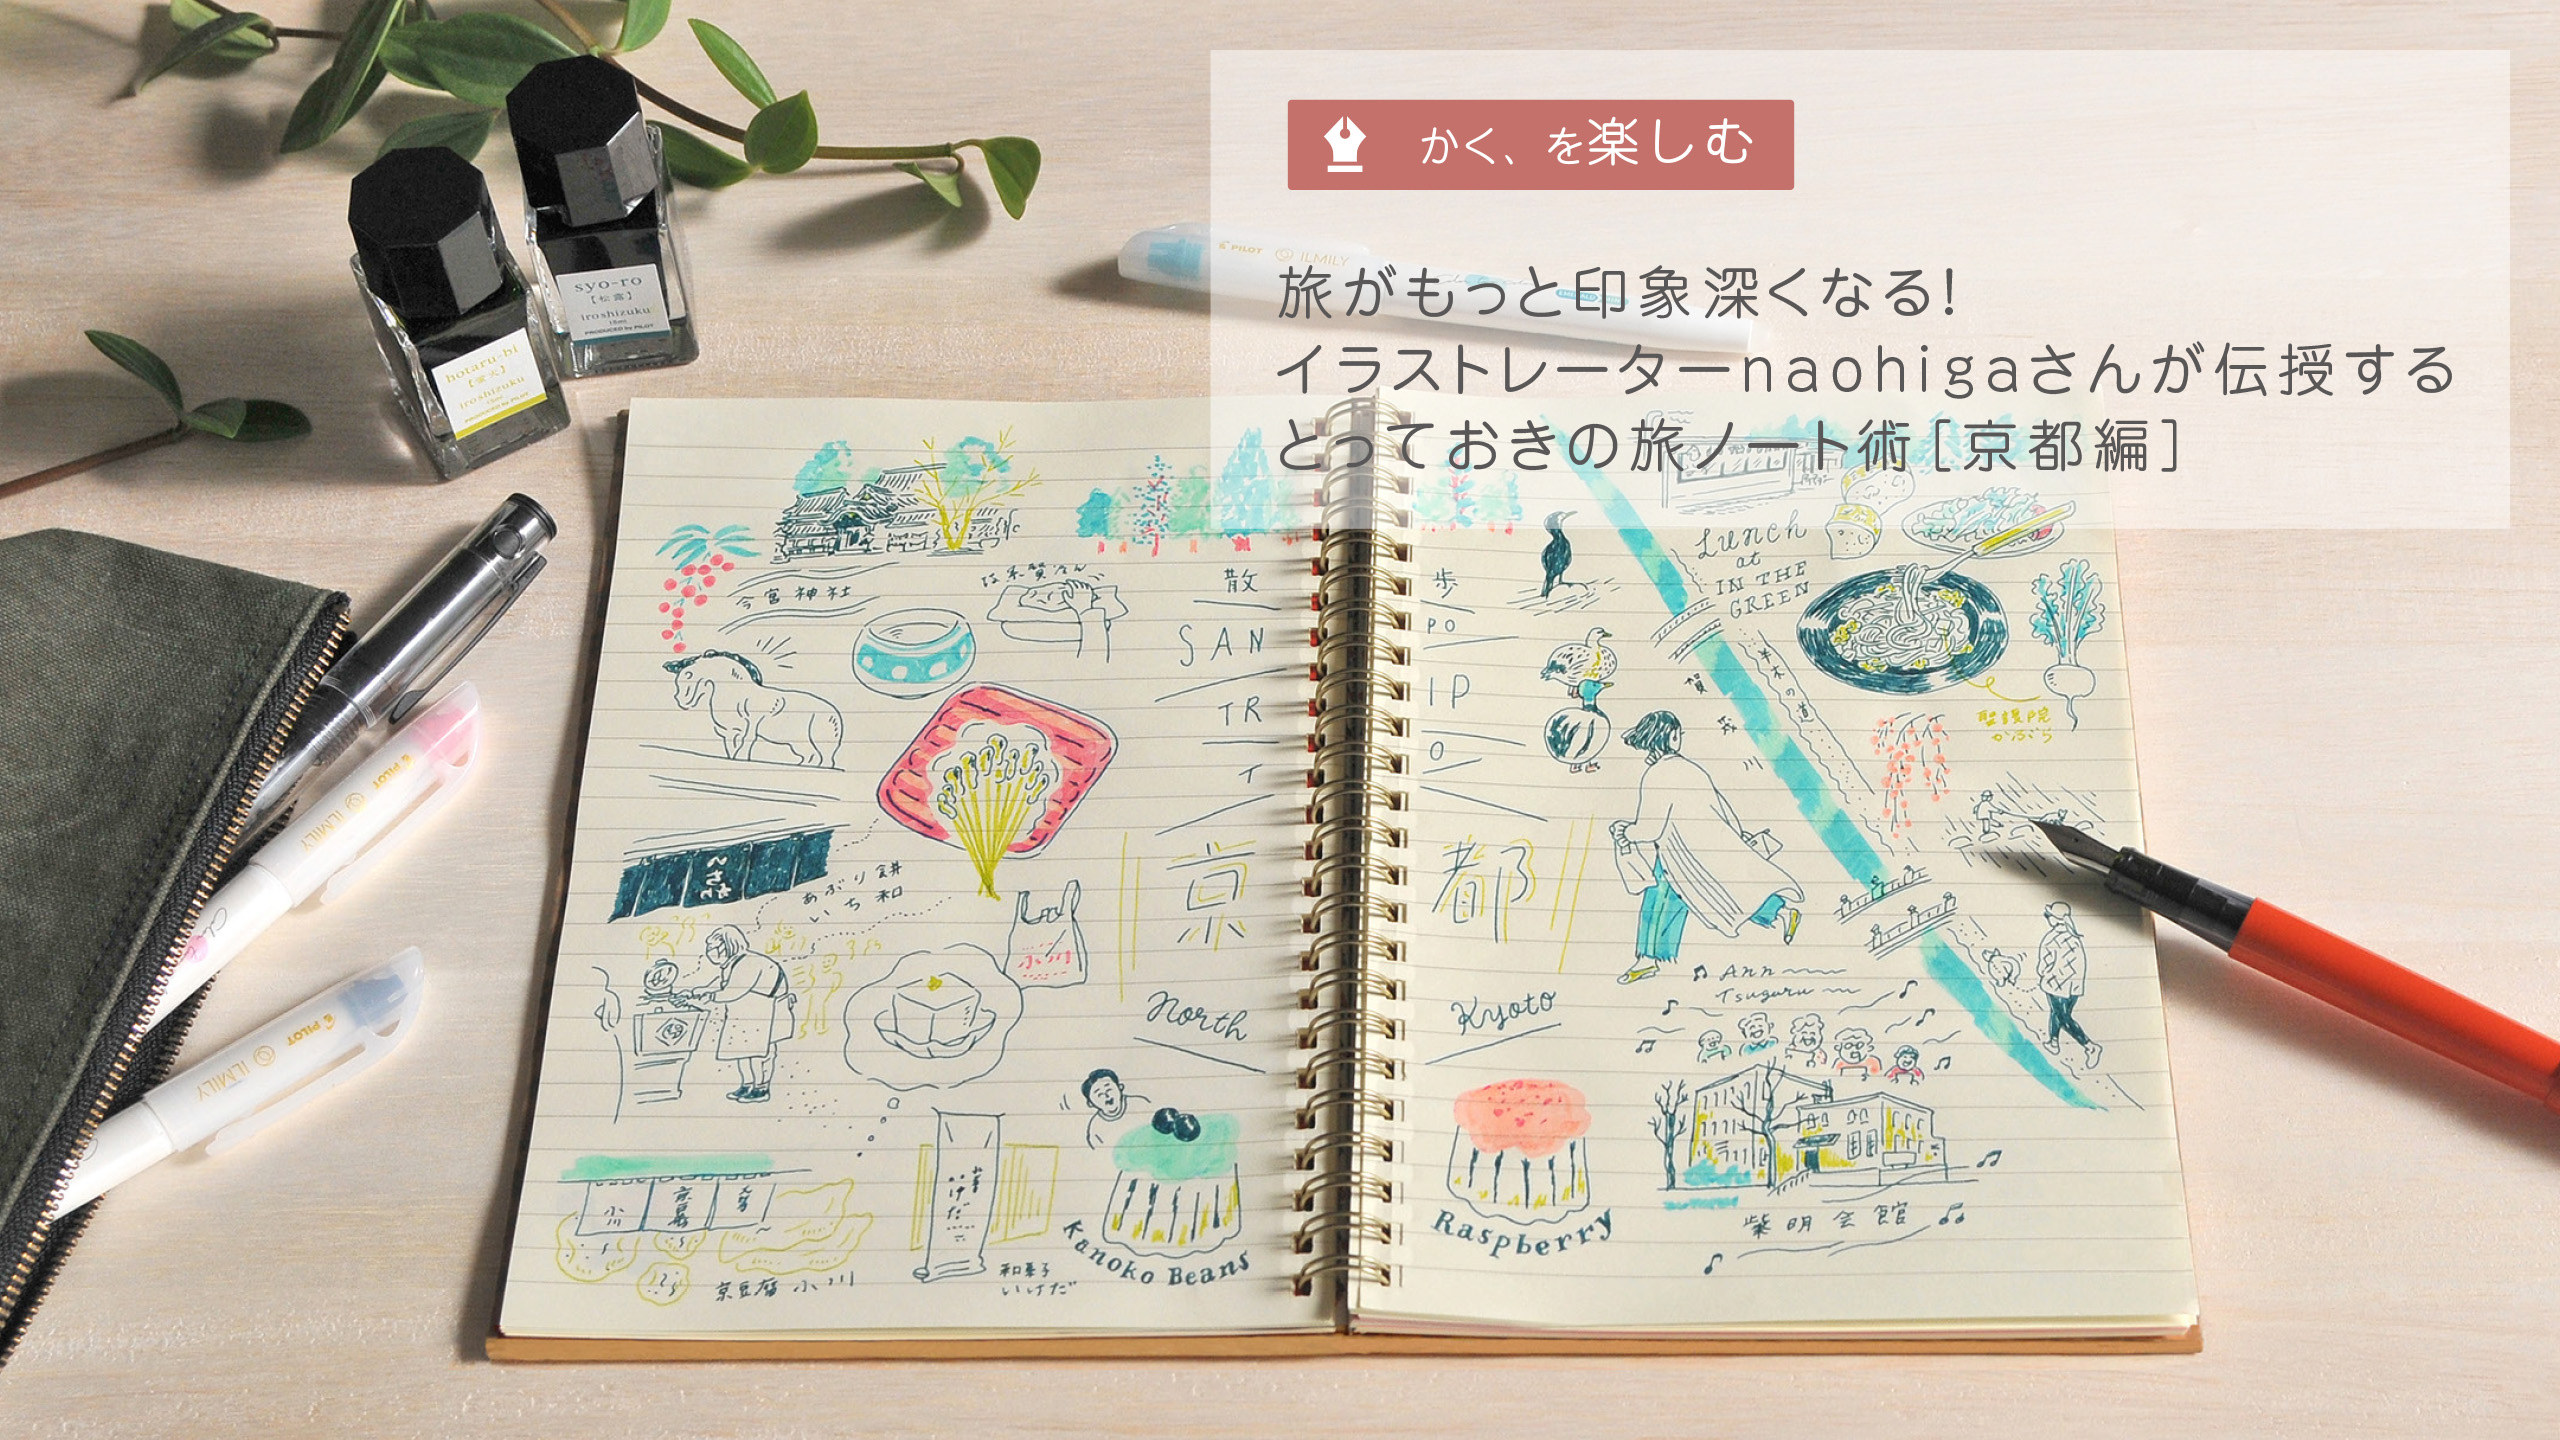 かく、を楽しむ
旅がもっと印象深くなる!
イラストレーターnaohigaさんが伝授する
とっておきの旅ノート術[京都編]
PILOT ILMILY
syo-ro
[松露]
iroshizuku
15ml
PRODUCED by PILOT
hotaru-bi
[蛍火]
iroshizuku
15ml
PRODUCED by PILOT
PILOT ILMILY
PILOT ILMILY
今宮神社
散
SAN
TR
京
North
あぶり餅
いち和
京豆腐 小川
和菓子
いけだ
Kanoko Beans
歩
PO
IP
O
都
Kyoto
Lunch
at
IN THE
GREEN
聖護院
かぶら
半木の道
賀茂川
Ann
Tsugaru
Raspberry
紫明会館